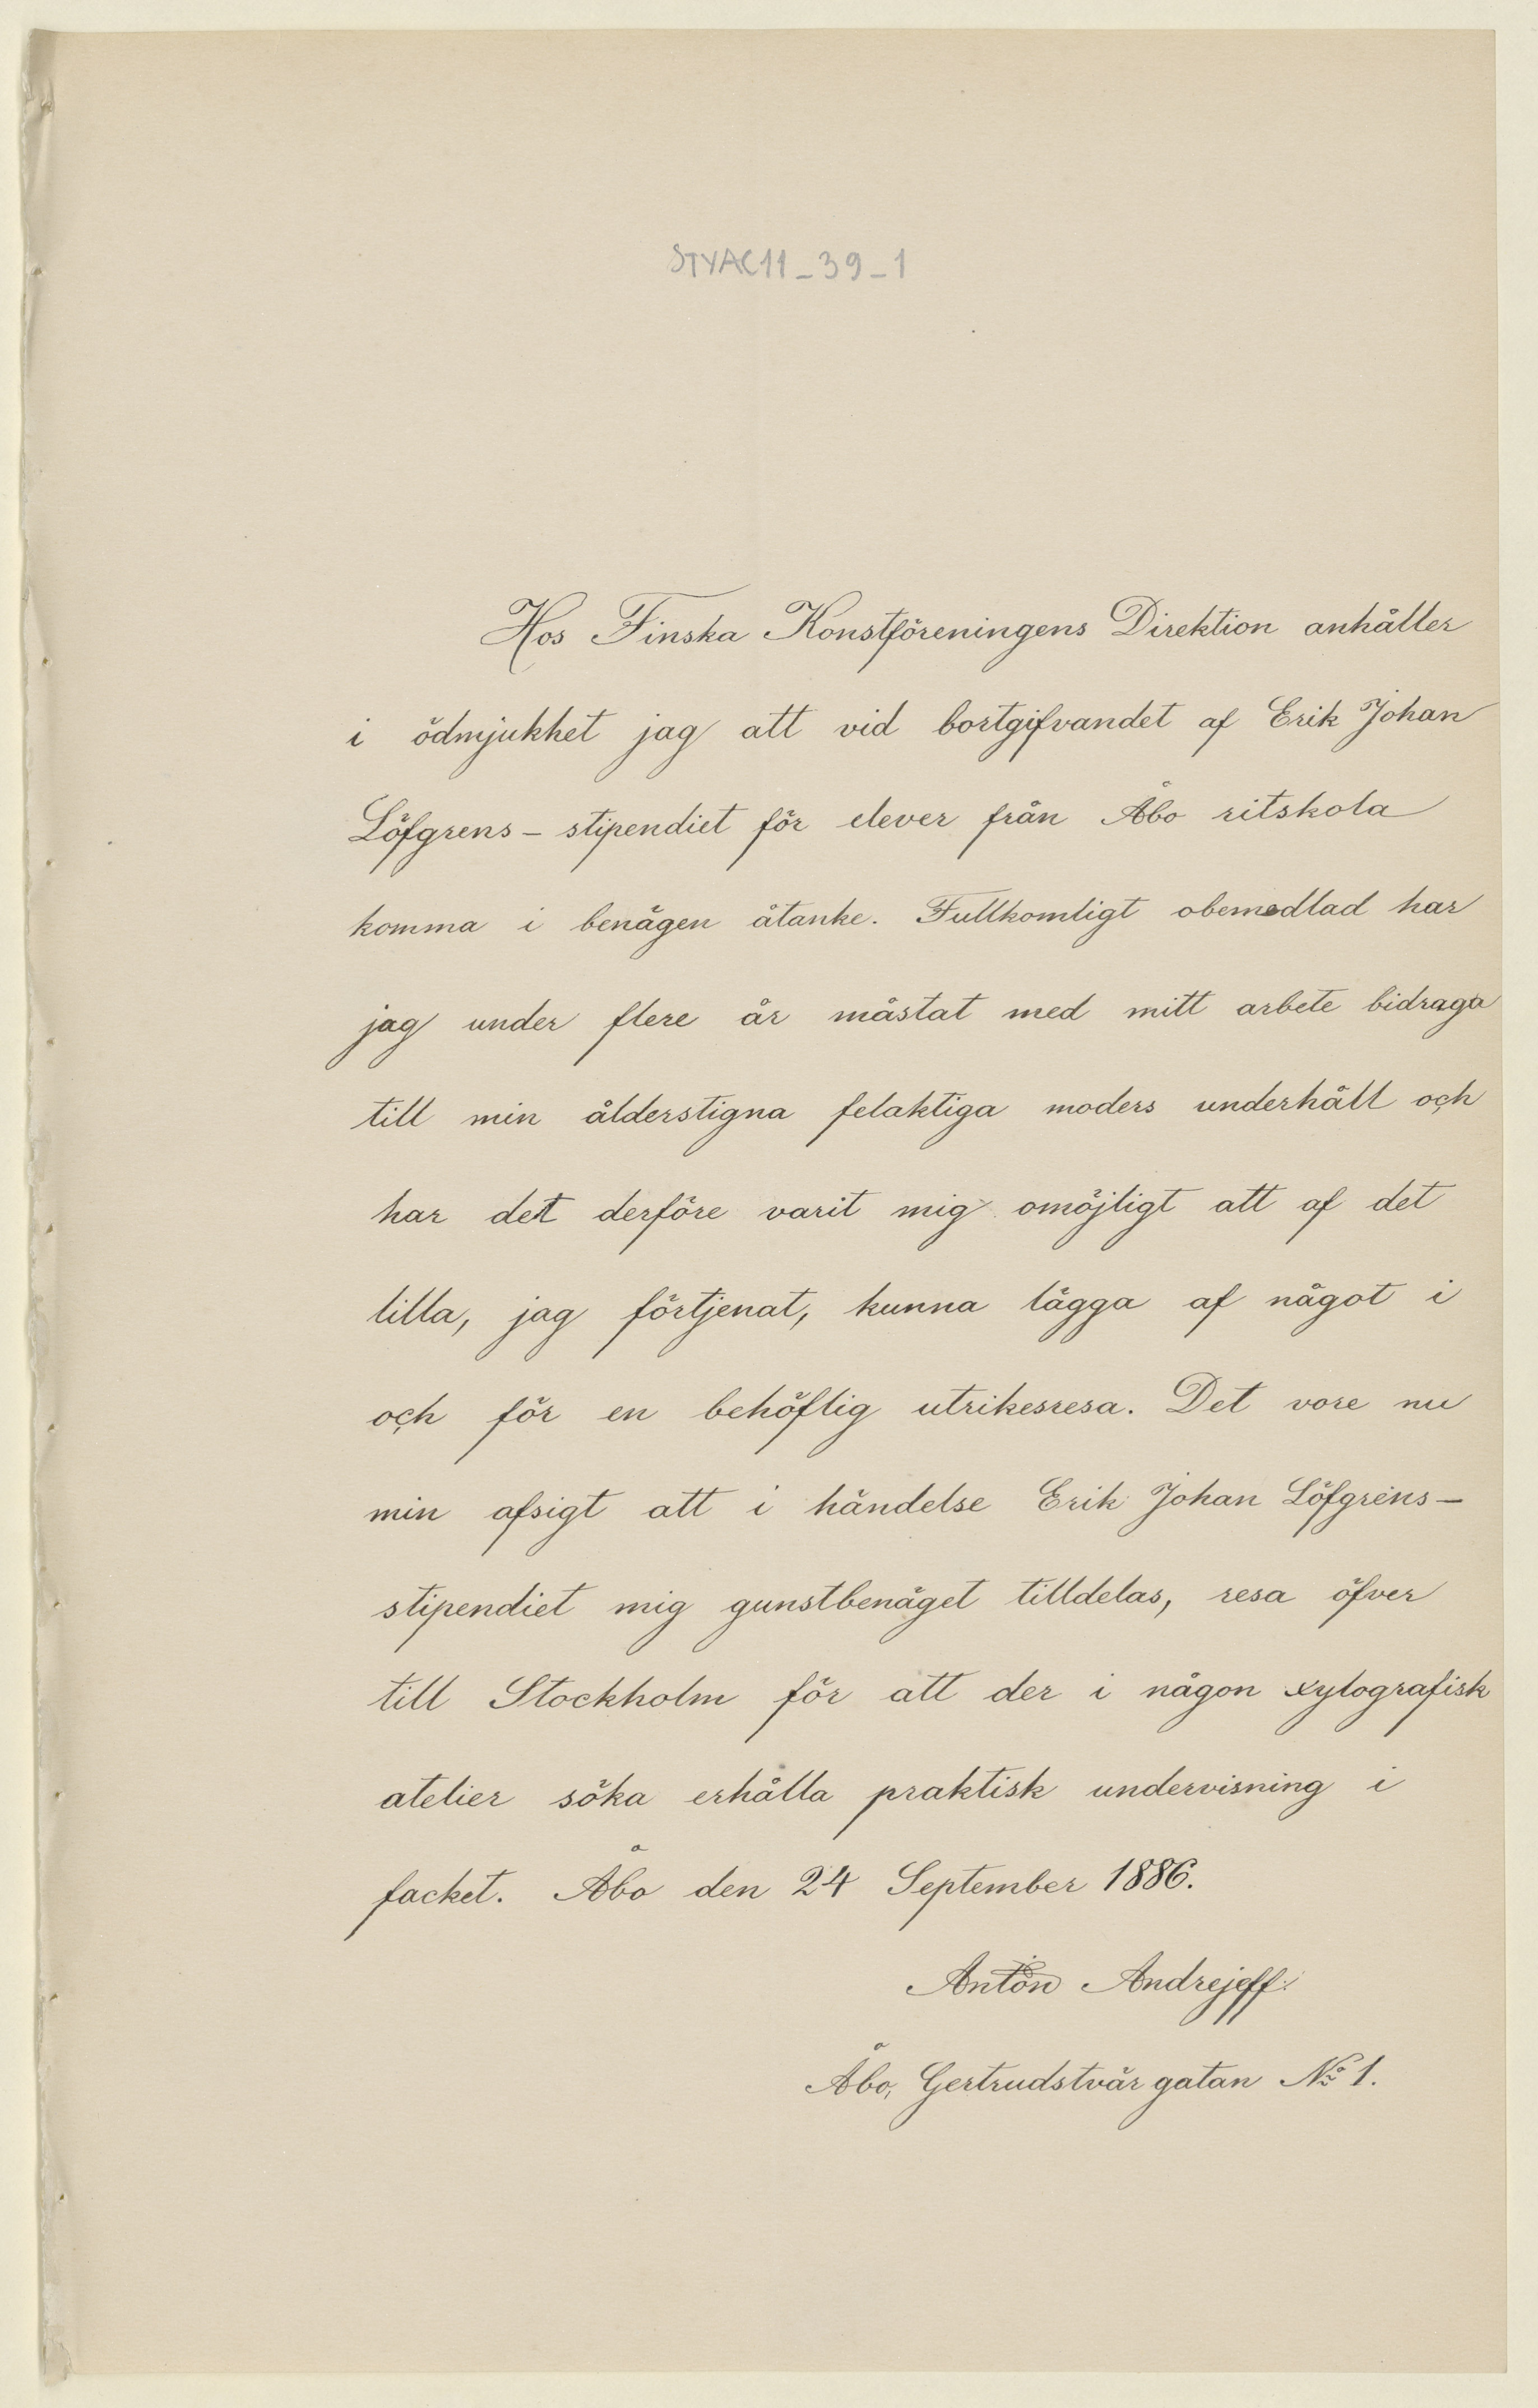 STYAC11_39_1
Hos Finska Konstföreningens Direktion anhåller
i ödmjukhet jag att vid bortgifvandet af Erik Johan
Löfgrens- stipendiet för elever från Åbo ritskola
komma i benägen åtanke. Fullkomligt obemedlad har
jag under flere år måstat med mitt arbete bidraga
till min ålderstigna felaktiga moders underhåll och
har det derföre varit mig omöjligt att af det
lilla, jag förtjenat, kunna lägga af något i
och för en behöflig utrikesresa. Det vore nu
min afsigt att i händelse Erik Johan Löfgrens-
stipendiet mig gunstbenäget tilldelas, resa öfver
till Stockholm för att der i någon xylografisk
atelier söka erhålla praktisk undervisning i
facket. Åbo den 24 September 1886.
Anton Andrejeff.
Åbo, Gertrudstvärgatan No 1.